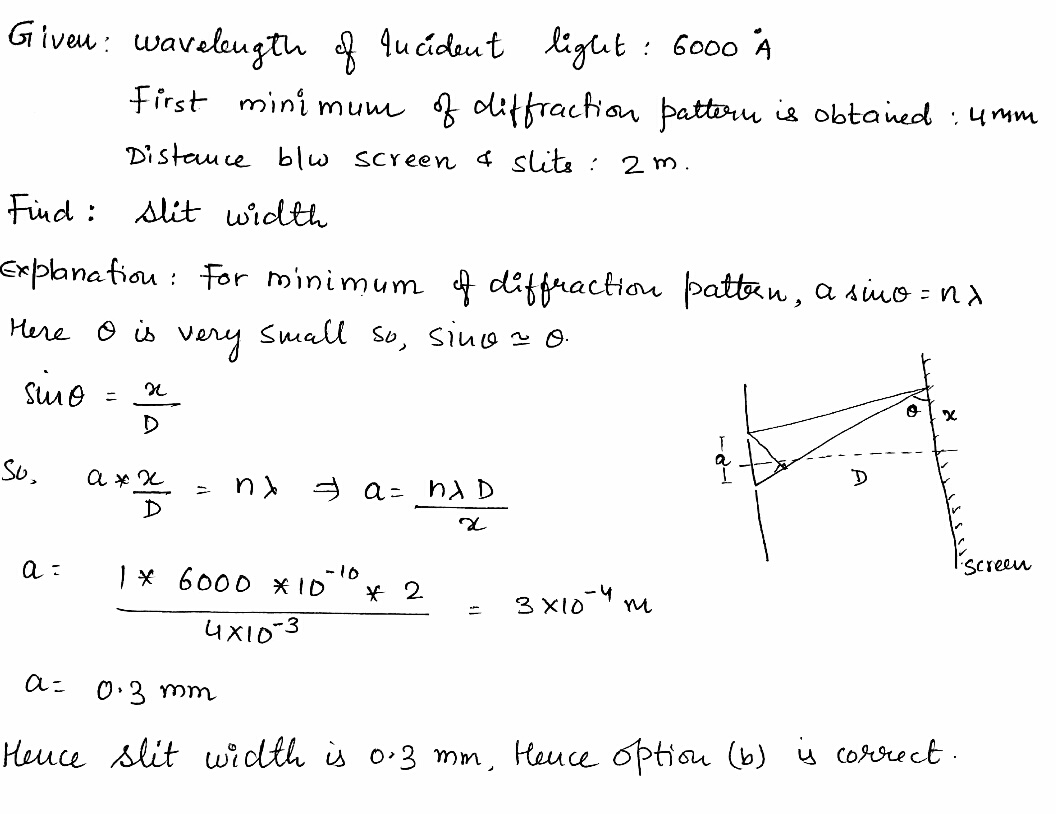 Given: wavelength of Incident light : 6000 Å
First minimum of diffraction pattern is obtained : 4mm
Distance b/w screen & slits : 2 m.
Find : slit width
Explanation : For minimum of diffraction pattern, a sinθ = nλ
Here θ is very small so, sinθ ≃ θ.
sinθ = x/D
So, a * x/D = nλ ⇒ a = nλD/x
a = (1 * 6000 * 10⁻¹⁰ * 2)/(4×10⁻³) = 3×10⁻⁴ m
a = 0.3 mm
Hence slit width is 0.3 mm, Hence option (b) is correct.
θ
x
a
D
Screen